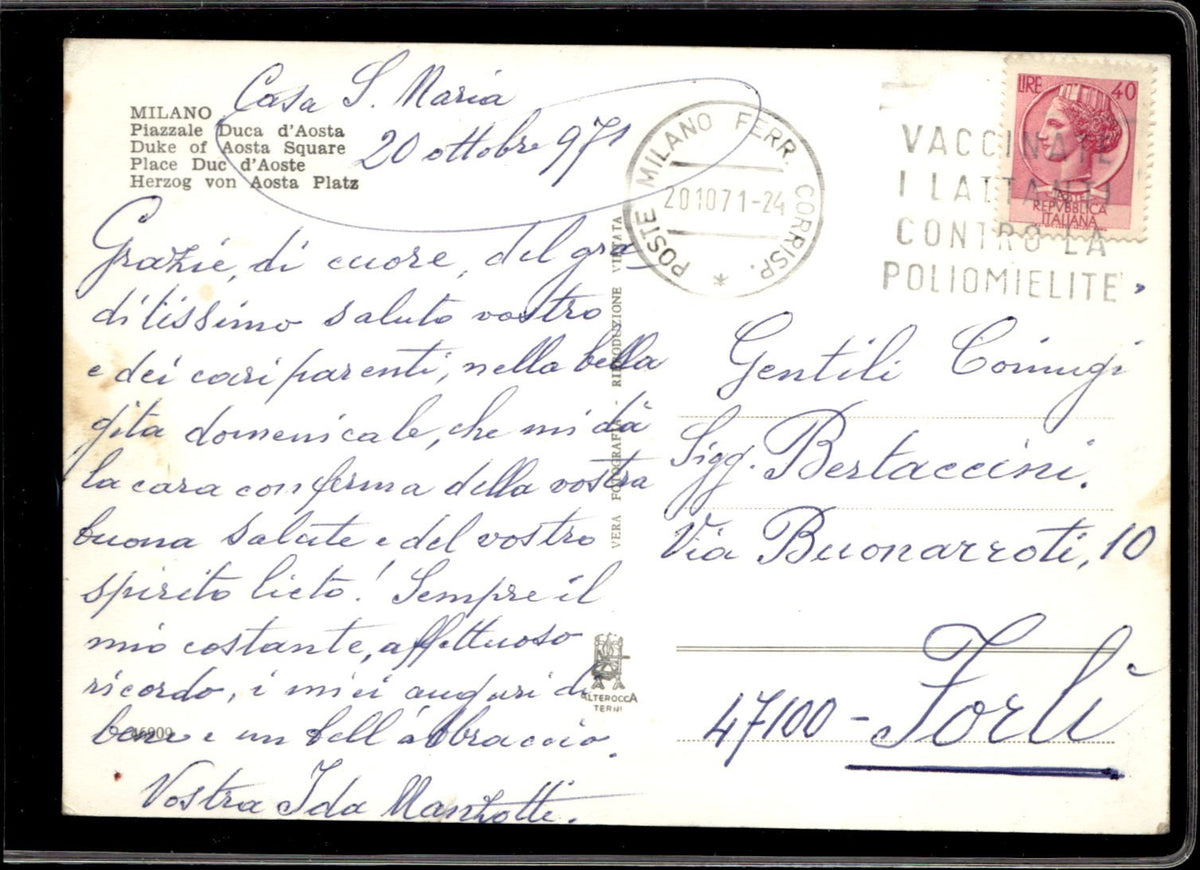 MILANO
Piazzale Duca d'Aosta
Duke of Aosta Square
Place Duc d'Aoste
Herzog von Aosta Platz
Casa S. Maria
20 ottobre 971
Grazie, di cuore, del gra-
ditissimo saluto vostro
e dei cari parenti, nella bella
gita domenicale, che mi dà
la cara conferma della vostra
buona salute e del vostro
spirito lieto! Sempre il
mio costante, affettuoso
ricordo, i miei auguri di
bene e un bell'abbraccio.
Vostra Ida Manzotti.
46909
VERA FOTOGRAFIA - RIPRODUZIONE VIETATA
ALTEROCCA
TERNI
POSTE MILANO FERR. CORRISP. *
20 10 71-24
VACCINATE
I LATTANTI
CONTRO LA
POLIOMIELITE
LIRE 40
REPVBBLICA
ITALIANA
Gentili Coniugi
Sigg. Bertaccini.
Via Buonarroti, 10
47100 - Forlì